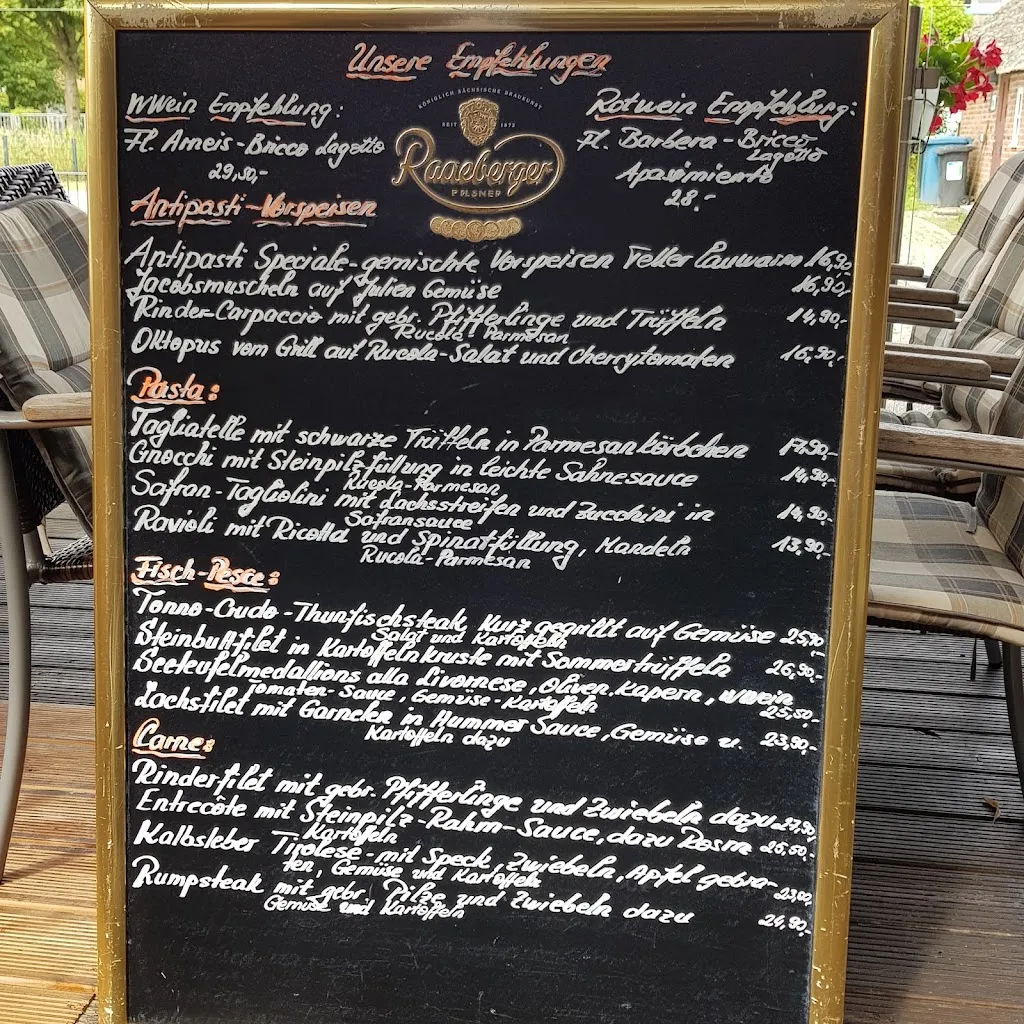 Unsere Empfehlungen
WWein Empfehlung:
Fl. Arneis-Bricco Lagotto
29,50,-
KÖNIGLICH SÄCHSISCHE BRAUKUNST
SEIT 1872
Radeberger
PILSNER
Rotwein Empfehlung:
Fl. Barbera - Bricco
Lagotto
Apasimiento
28.-
Antipasti-Vorspeisen
Antipasti Speciale-gemischte Vorspeisen Teller lauwarm 16,90,-
Jacobsmuscheln auf Julien Gemüse 16,90,-
Rinder-Carpaccio mit gebr. Pfifferlinge und Trüffeln 14,90,-
Rucola Parmesan
Oktopus vom Grill auf Rucola-Salat und Cherrytomaten 16,90,-
Pasta:
Tagliatelle mit schwarze Trüffeln in Parmesankörbchen 17,90,-
Gnocchi mit Steinpilzfüllung in leichte Sahnesauce 14,90,-
Rucola-Parmesan
Safran-Tagliolini mit Lachsstreifen und Zucchini in 14,90,-
Safransauce
Ravioli mit Ricotta und Spinatfüllung, Mandeln 13,90,-
Rucola-Parmesan
Fisch-Pesce:
Tonno-Crudo-Thunfischsteak, Kurz gegrillt auf Gemüse
Salat und Kartoffeln
Steinbuttfilet in Kartoffelnkruste mit Sommertrüffeln 26,90,-
Seeteufelmedallions alla Livornese, Oliven, Kapern, WWein
Tomaten-Sauce, Gemüse-Kartoffeln 25,50,-
Lachsfilet mit Garnelen in Hummer Sauce, Gemüse u. 23,90,-
Kartoffeln dazu
Carne:
Rinderfilet mit gebr. Pfifferlinge und Zwiebeln dazu 27,90,-
Entrecôte mit Steinpilz-Rahm-Sauce, dazu Rosm 25,50,-
Kartoffeln
Kalbsleber Tirolese-mit Speck, Zwiebeln, Apfel gebra-
ten, Gemüse und Kartoffeln
Rumpsteak mit gebr. Pilze und Zwiebeln dazu 24,90,-
Gemüse und Kartoffeln